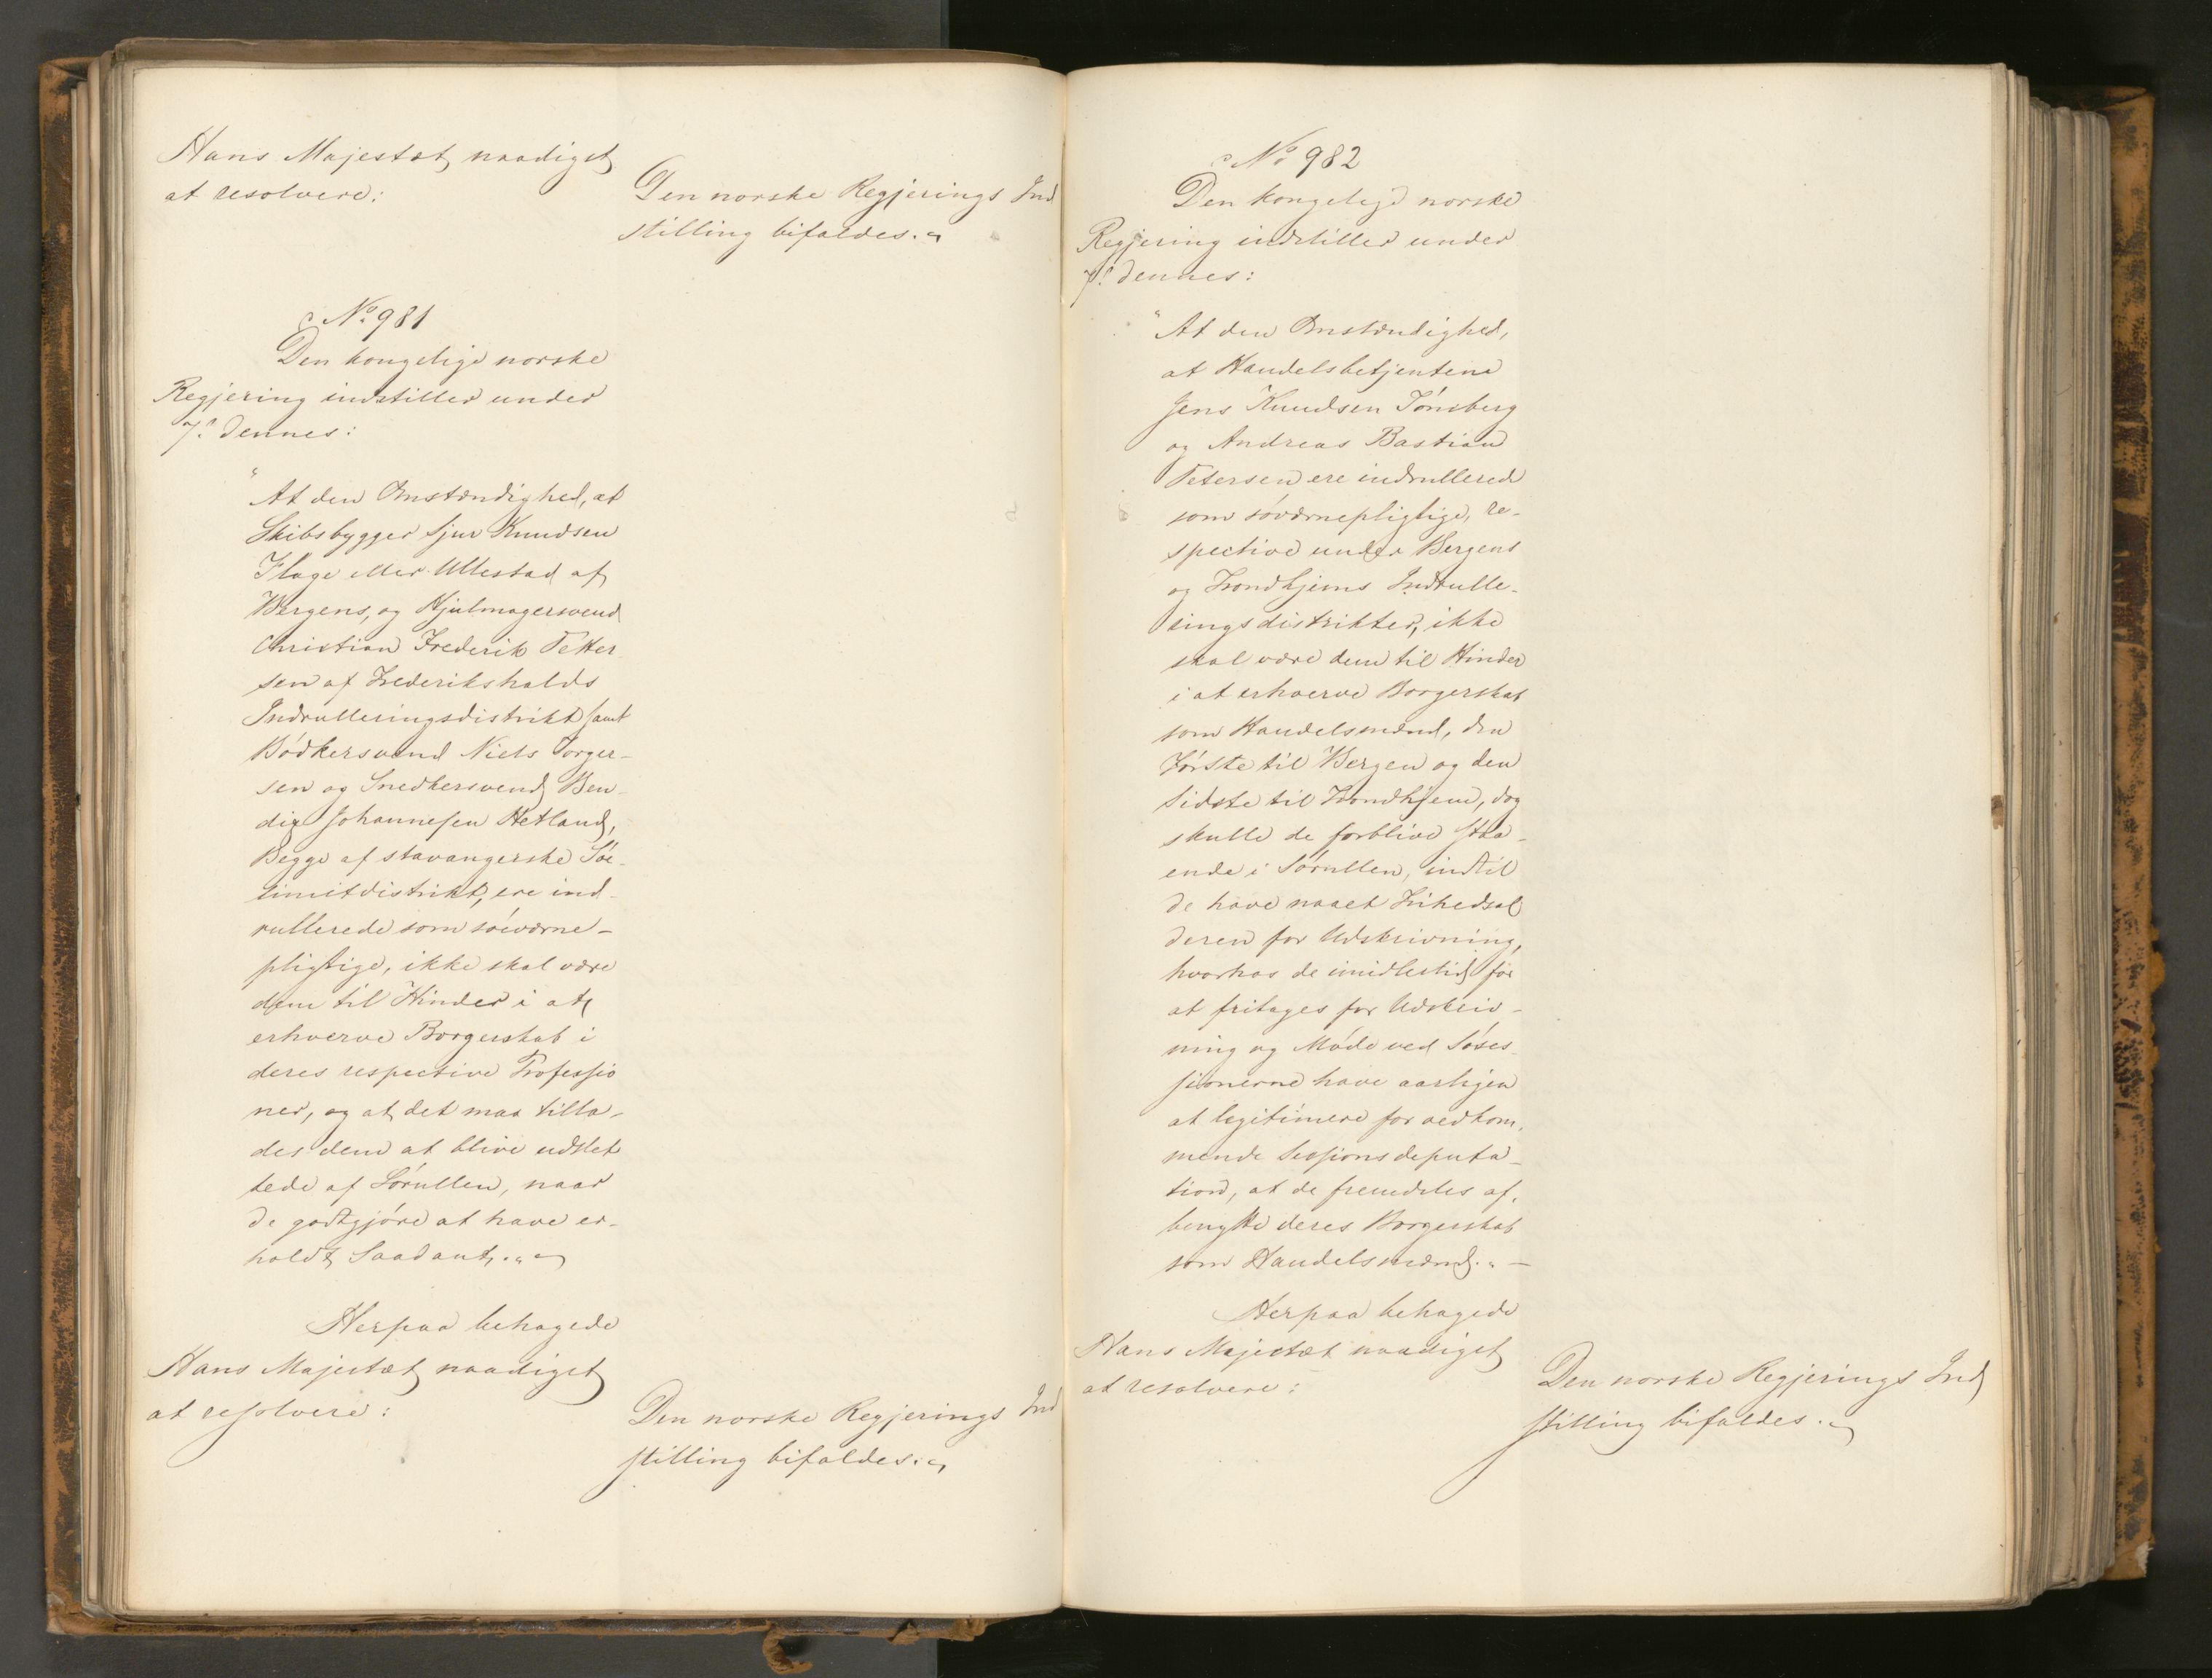 Hans Majestæt naadigst
at resolvere:
Den norske Regjerings Ind
stilling bifaldes.
No 981
Den kongelige norske
Regjering indstiller under
7de dennes:
"At den Omstændighed, at
Skibsbygger Sjur Knudsen
Flage eller Ullestad af
Bergens, og Hjulmagersvend
Christian Frederik Petter
sen af Frederikshalds
Indrulleringsdistrikt samt
Bödkersvend Niels Torger-
sen og Snedkersvend Ben-
dix Johannesen Hetland,
Begge af stavangerske Söe-
limitdistrikt, ere ind-
rullerede som söeværne-
pligtige, ikke skal være
dem til Hinder i at
erhverve Borgerskab i
deres respective Professio
ner, og at det maa tilla-
des dem at blive udslet
tede af Sörullen, naar
de godtgjöre at have er-
holdt Saadant."
Herpaa behagede
Hans Majestæt naadigst
at resolvere:
Den norske Regjerings Ind
stilling bifaldes.
No 982
Den kongelige norske
Regjering indstiller under
7de dennes:
"At den Omstændighed,
at Handelsbetjentene
Jens Knudsen Tönsberg
og Andreas Bastian
Petersen ere indrullerede
som söværnepligtige, re-
spective under Bergens
og Trondhjems Indrulle-
ringsdistrikter, ikke
skal være dem til Hinder
i at erhverve Borgerskab
som Handelsmænd, den
Förste til Bergen og den
Sidste til Trondhjem, dog
skulle de forblive staa-
ende i Sörullen, indtil
de have naaet Frihedsal
deren for Udskrivning,
hvorhos de imidlertid for
at fritages for Udskriv-
ning og Möde ved Söses-
sionerne have aarligen
at legitimere for vedkom-
mende Sessionsdeputa-
tion, at de fremdeles af-
benytte deres Borgerskab
som Handelsmænd." -
Herpaa behagede
Hans Majestæt naadigst
at resolvere:
Den norske Regjerings Ind
stilling bifaldes.